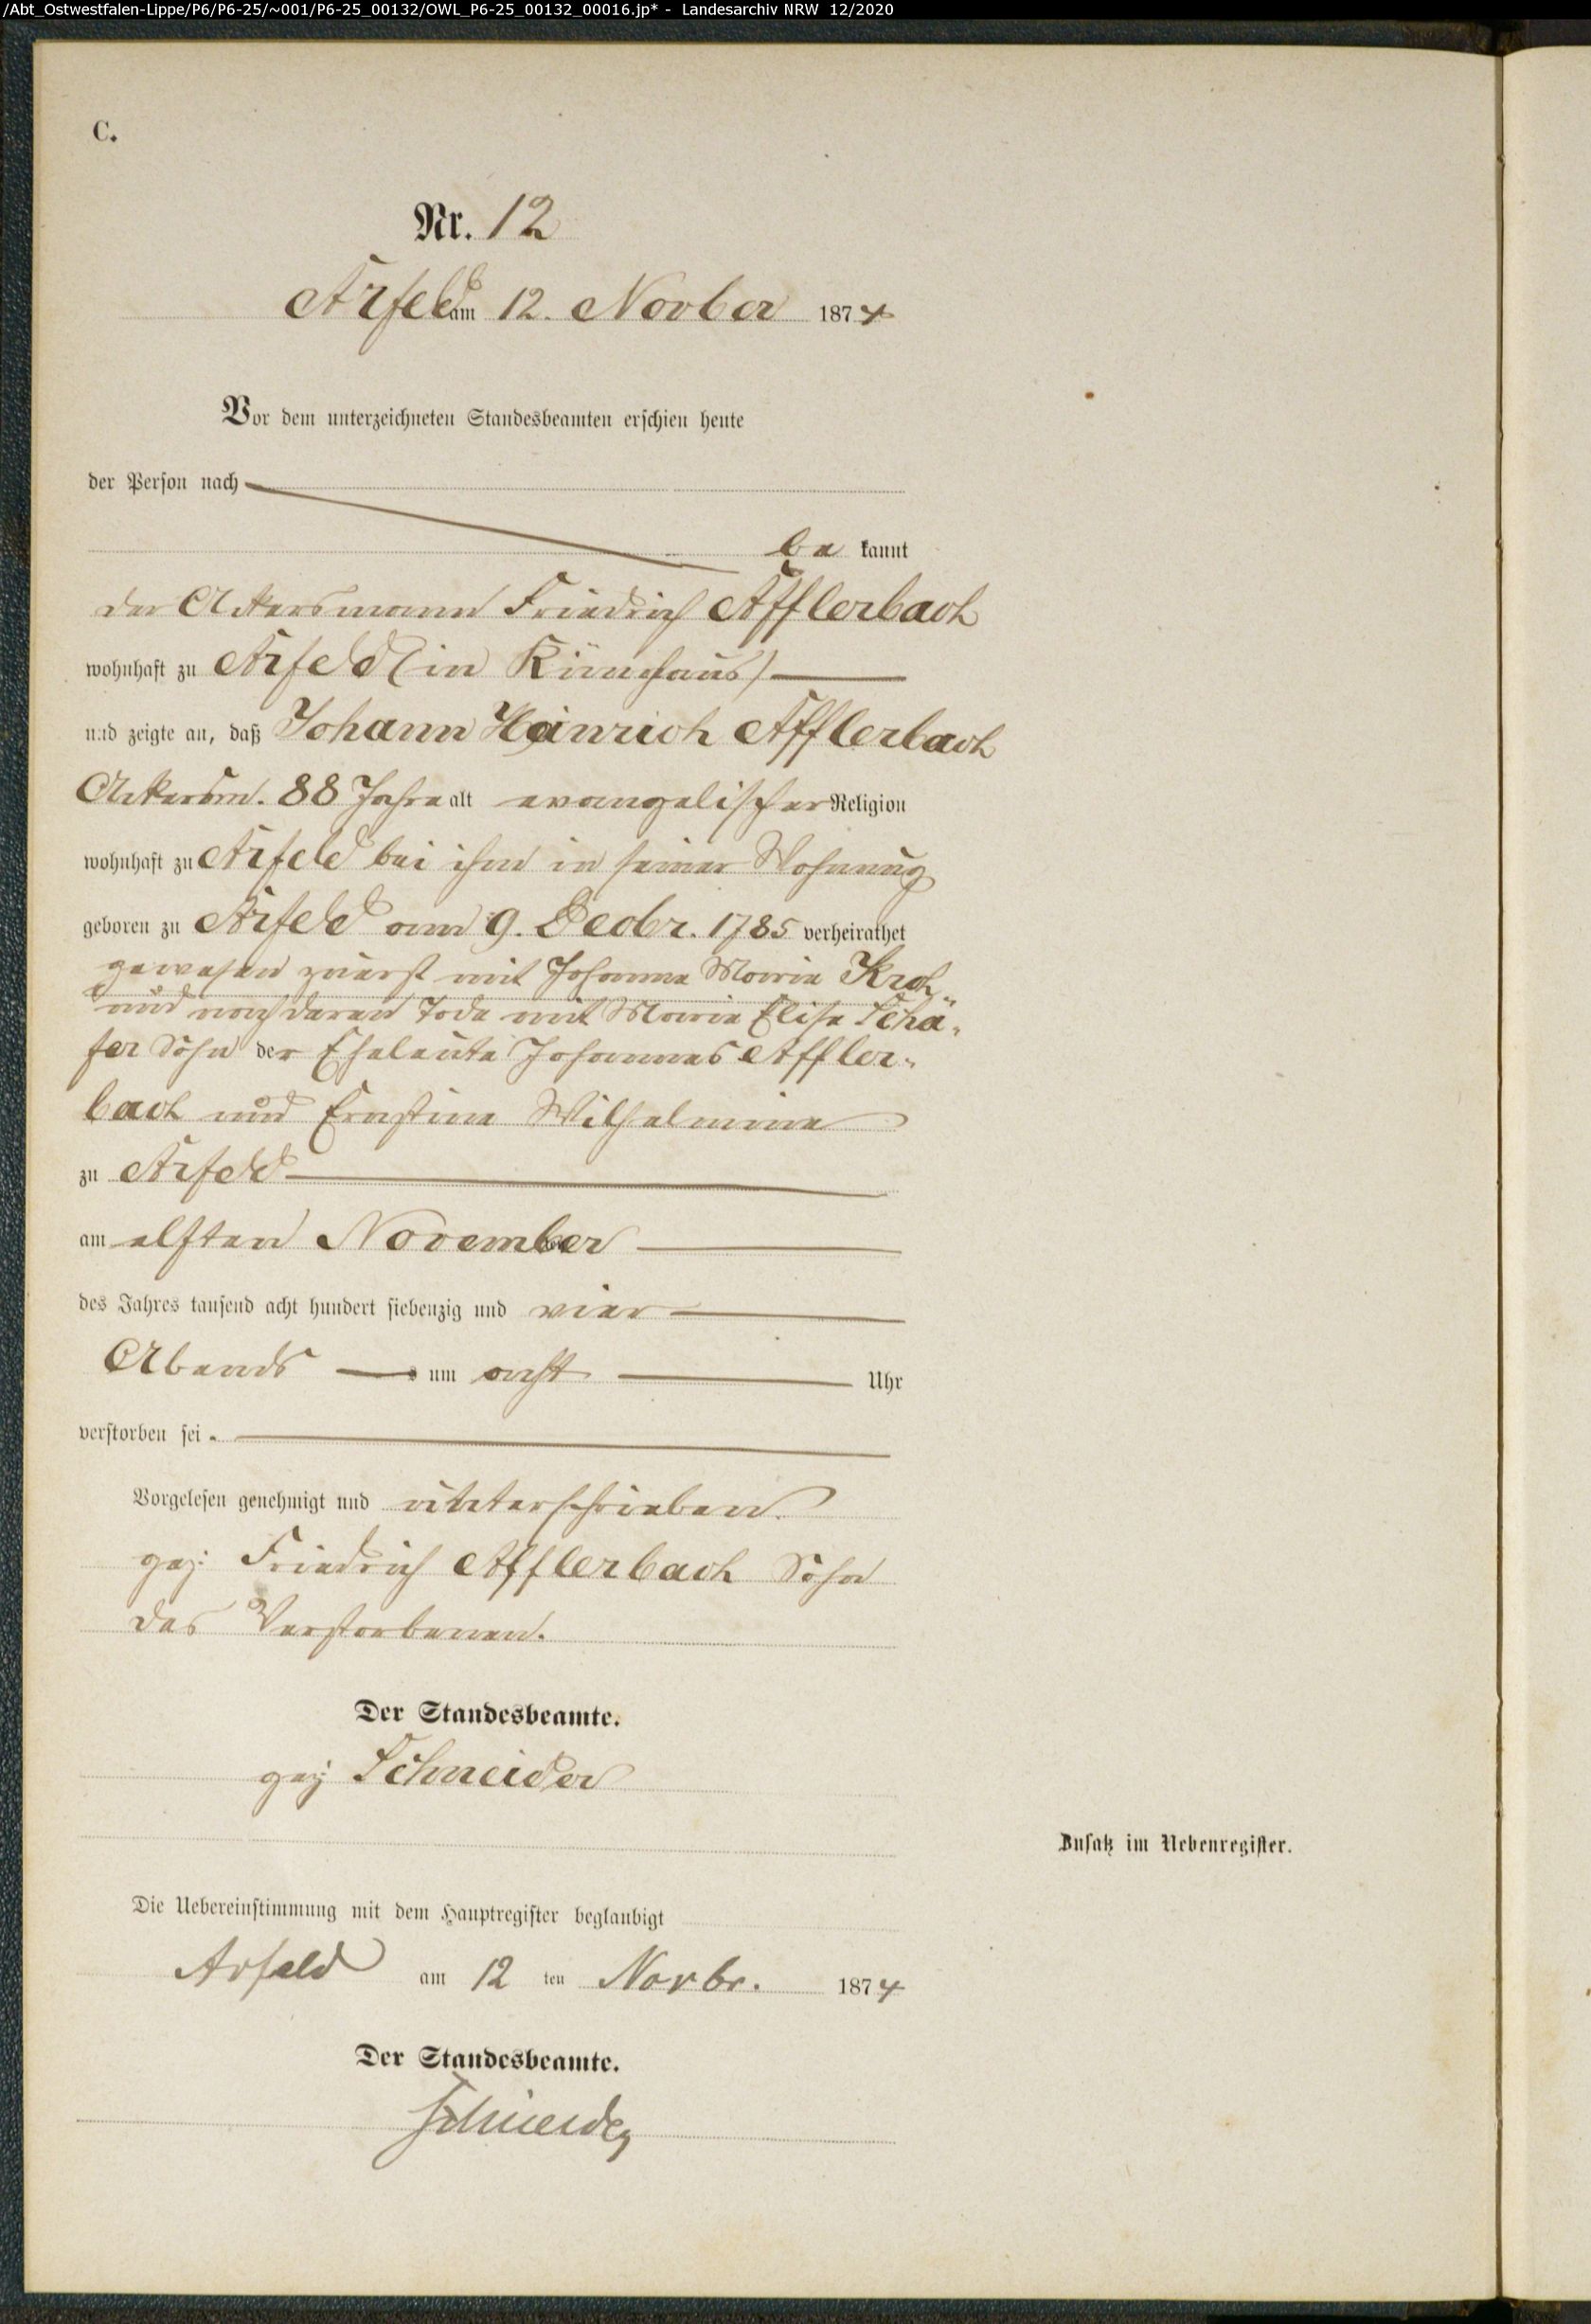 /Abt_Ostwestfalen-Lippe/P6/P6-25/~001/P6-25_00132/OWL_P6-25_00132_00016.jp* - Landesarchiv NRW 12/2020
C.
Nr. 12
Arfeld am 12. Novber 1874
Vor dem unterzeichneten Standesbeamten erschien heute
der Person nach
be kannt
der Ackersmann Friedrich Afflerbach
wohnhaft zu Arfeld (in )
und zeigte an, daß Johann Heinrich Afflerbach
Ackersm. 88 Jahre alt evangelischer Religion
wohnhaft zu Arfeld bei ihm in seiner Wohnung
geboren zu Arfeld am 9. Decbr. 1785 verheirathet
gewesen zuerst mit Johanna Maria Kroh
und nach deren Tode mit Maria Elise Schä-
fer Sohn der Eheleute Johannes Affler-
bach und Ernstine Wilhelmine
zu Arfeld
am elften November
des Jahres tausend acht hundert siebenzig und vier
Abends um acht Uhr
verstorben sei.
Vorgelesen genehmigt und unterschrieben.
gez: Friedrich Afflerbach Sohn
des Verstorbenen.
Der Standesbeamte.
gez Schneider
Zusatz im Nebenregister.
Die Uebereinstimmung mit dem Hauptregister beglaubigt
Arfeld am 12 ten Novbr. 1874
Der Standesbeamte.
Schneider